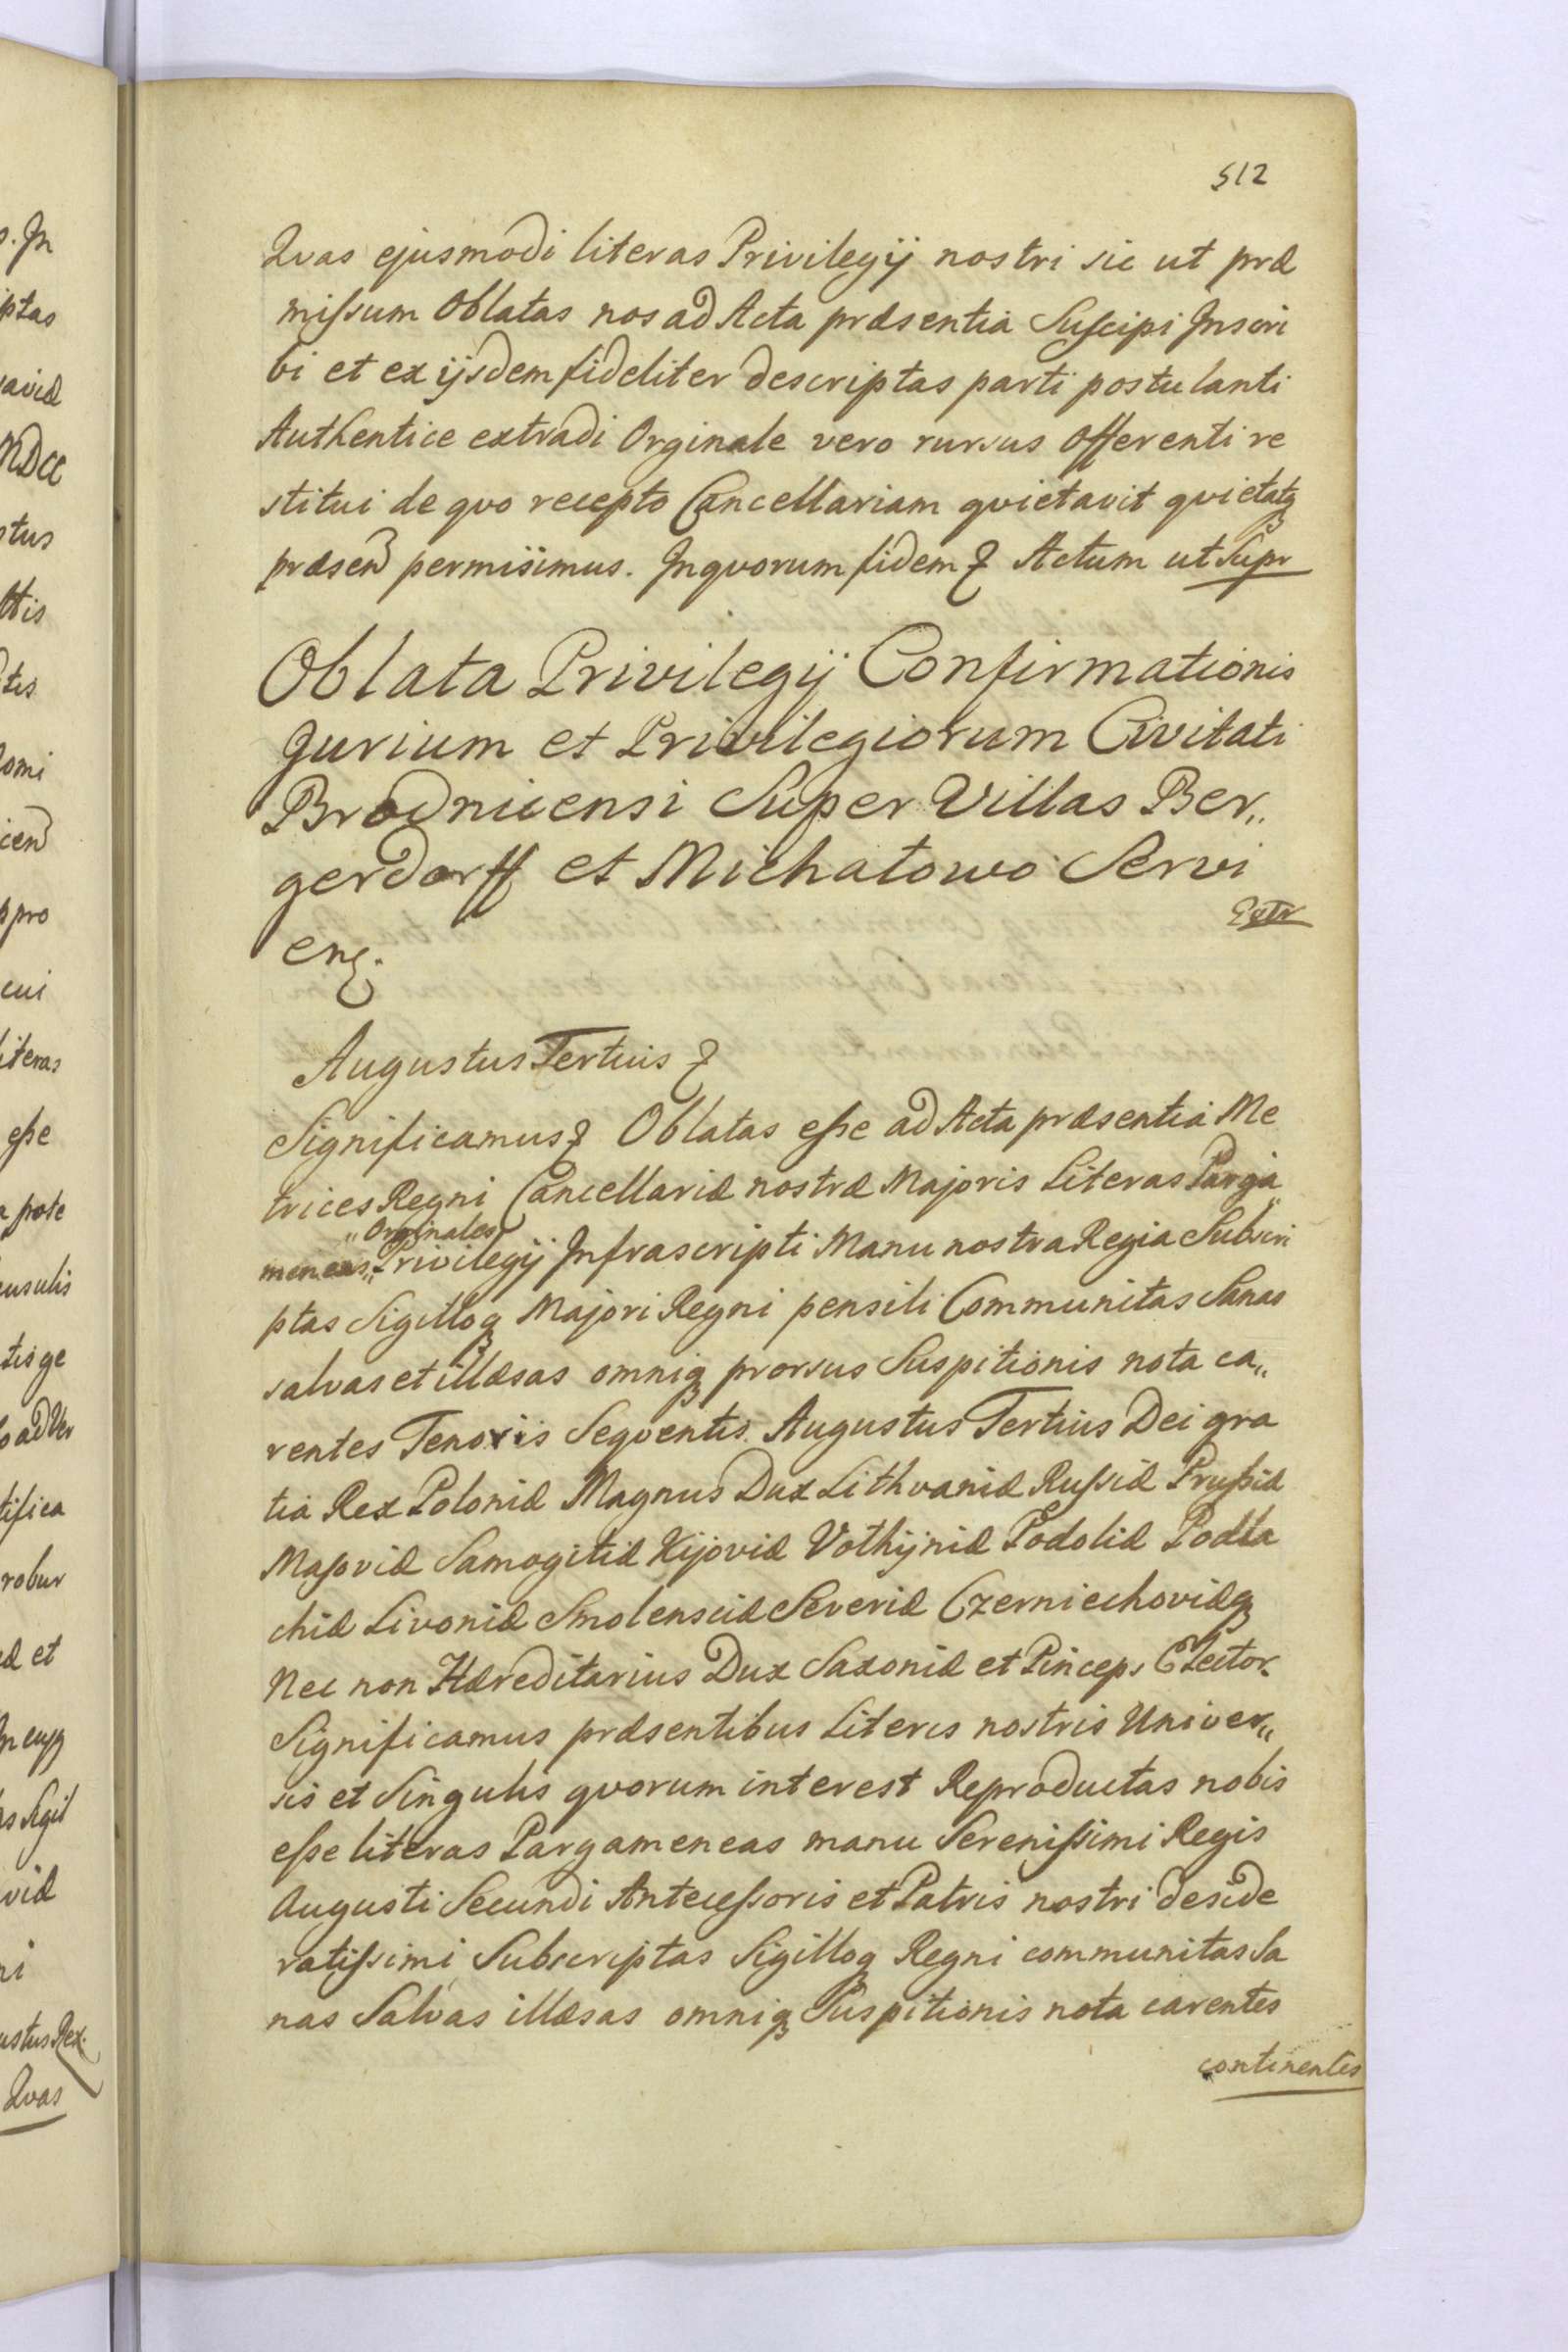 512
Qvas ejusmodi literas Privilegij nostri sic ut præ
missum Oblatas nos ad Acta præsentia Suscipi Inscri
bi et ex ijsdem fideliter descriptas parti postulanti
Authentice extradi Orginale vero rursus Offerenti re
stitui de qvo recepto Cancellariam qvietavit qvietatq
præsen permisimus. In qvorum fidem & Actum ut Supr
Oblata Privilegij Confirmationis
Jurium et Privilegiorum Civitati
Brodnicensi Super Villas Ber„
gerdorff et Michałowo Servi
Extr
enš.
Augustus Tertius &
Significamus & Oblatas esse ad Acta præsentia Me
trices Regni Cancellariæ nostræ Majoris Literas Parga„
„Orginales
meneas„ Privilegij Infrascripti Manu nostra Regia Subscri
ptas Sigilloq Majori Regni pensili Communitas Sanas
salvas et illæsas omniq prorsus Suspitionis nota ca„
rentes Tenoris Seqventis. Augustus Tertius Dei gra
tia Rex Poloniæ Magnus Dux Lithvaniæ Russiæ Prussiæ
Masoviæ Samogitiæ Kijoviæ Vołhyniæ Podoliæ Podla
chiæ Livoniæ Smolensciæ Severiæ Czerniechoviæq
Nec non Hæreditarius Dux Saxoniæ et Pinceps Elector.
Significamus præsentibus Literis nostris Univer„
sis et Singulis qvorum interest Reproductas nobis
esse literas Pargameneas manu Serenissimi Regis
Augusti Secundi Antecessoris et Patris nostri deside
ratissimi Subscriptas Sigilloq Regni communitas Sa
nas Salvas illæsas omniq Suspitionis nota carentes
continentes